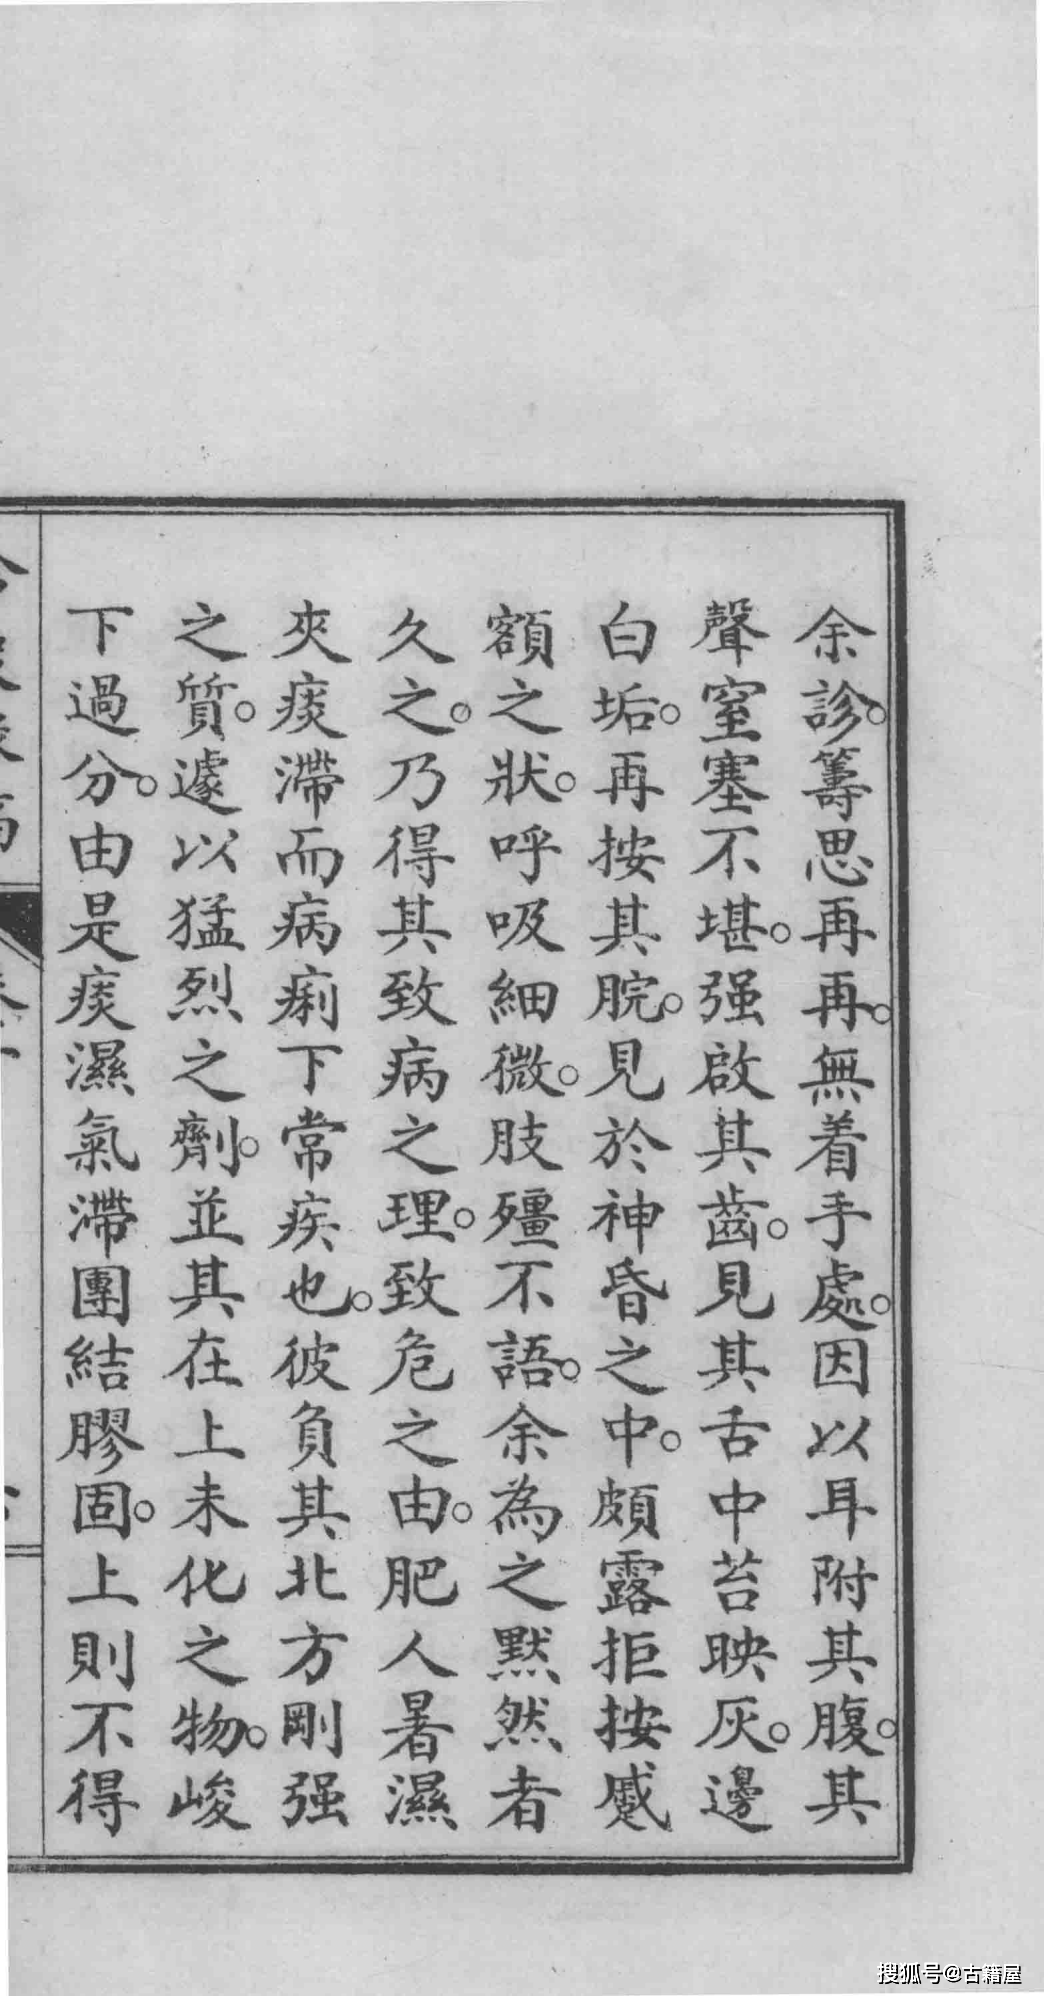 余診。籌思再再。無着手處。因以耳附其腹。其
聲窒塞不堪。强啟其齒。見其舌中苔映灰。邊
白垢。再按其脘。見於神昏之中。頗露拒按慼
額之狀。呼吸細微。肢殭不語。余為之黙然者
久之。乃得其致病之理。致危之由。肥人暑濕
夾痰滯而病痢下常疾也。彼負其北方剛强
之質。遽以猛烈之劑。並其在上未化之物。峻
下過分。由是痰濕氣滯團結膠固。上則不得
搜狐号@古籍屋